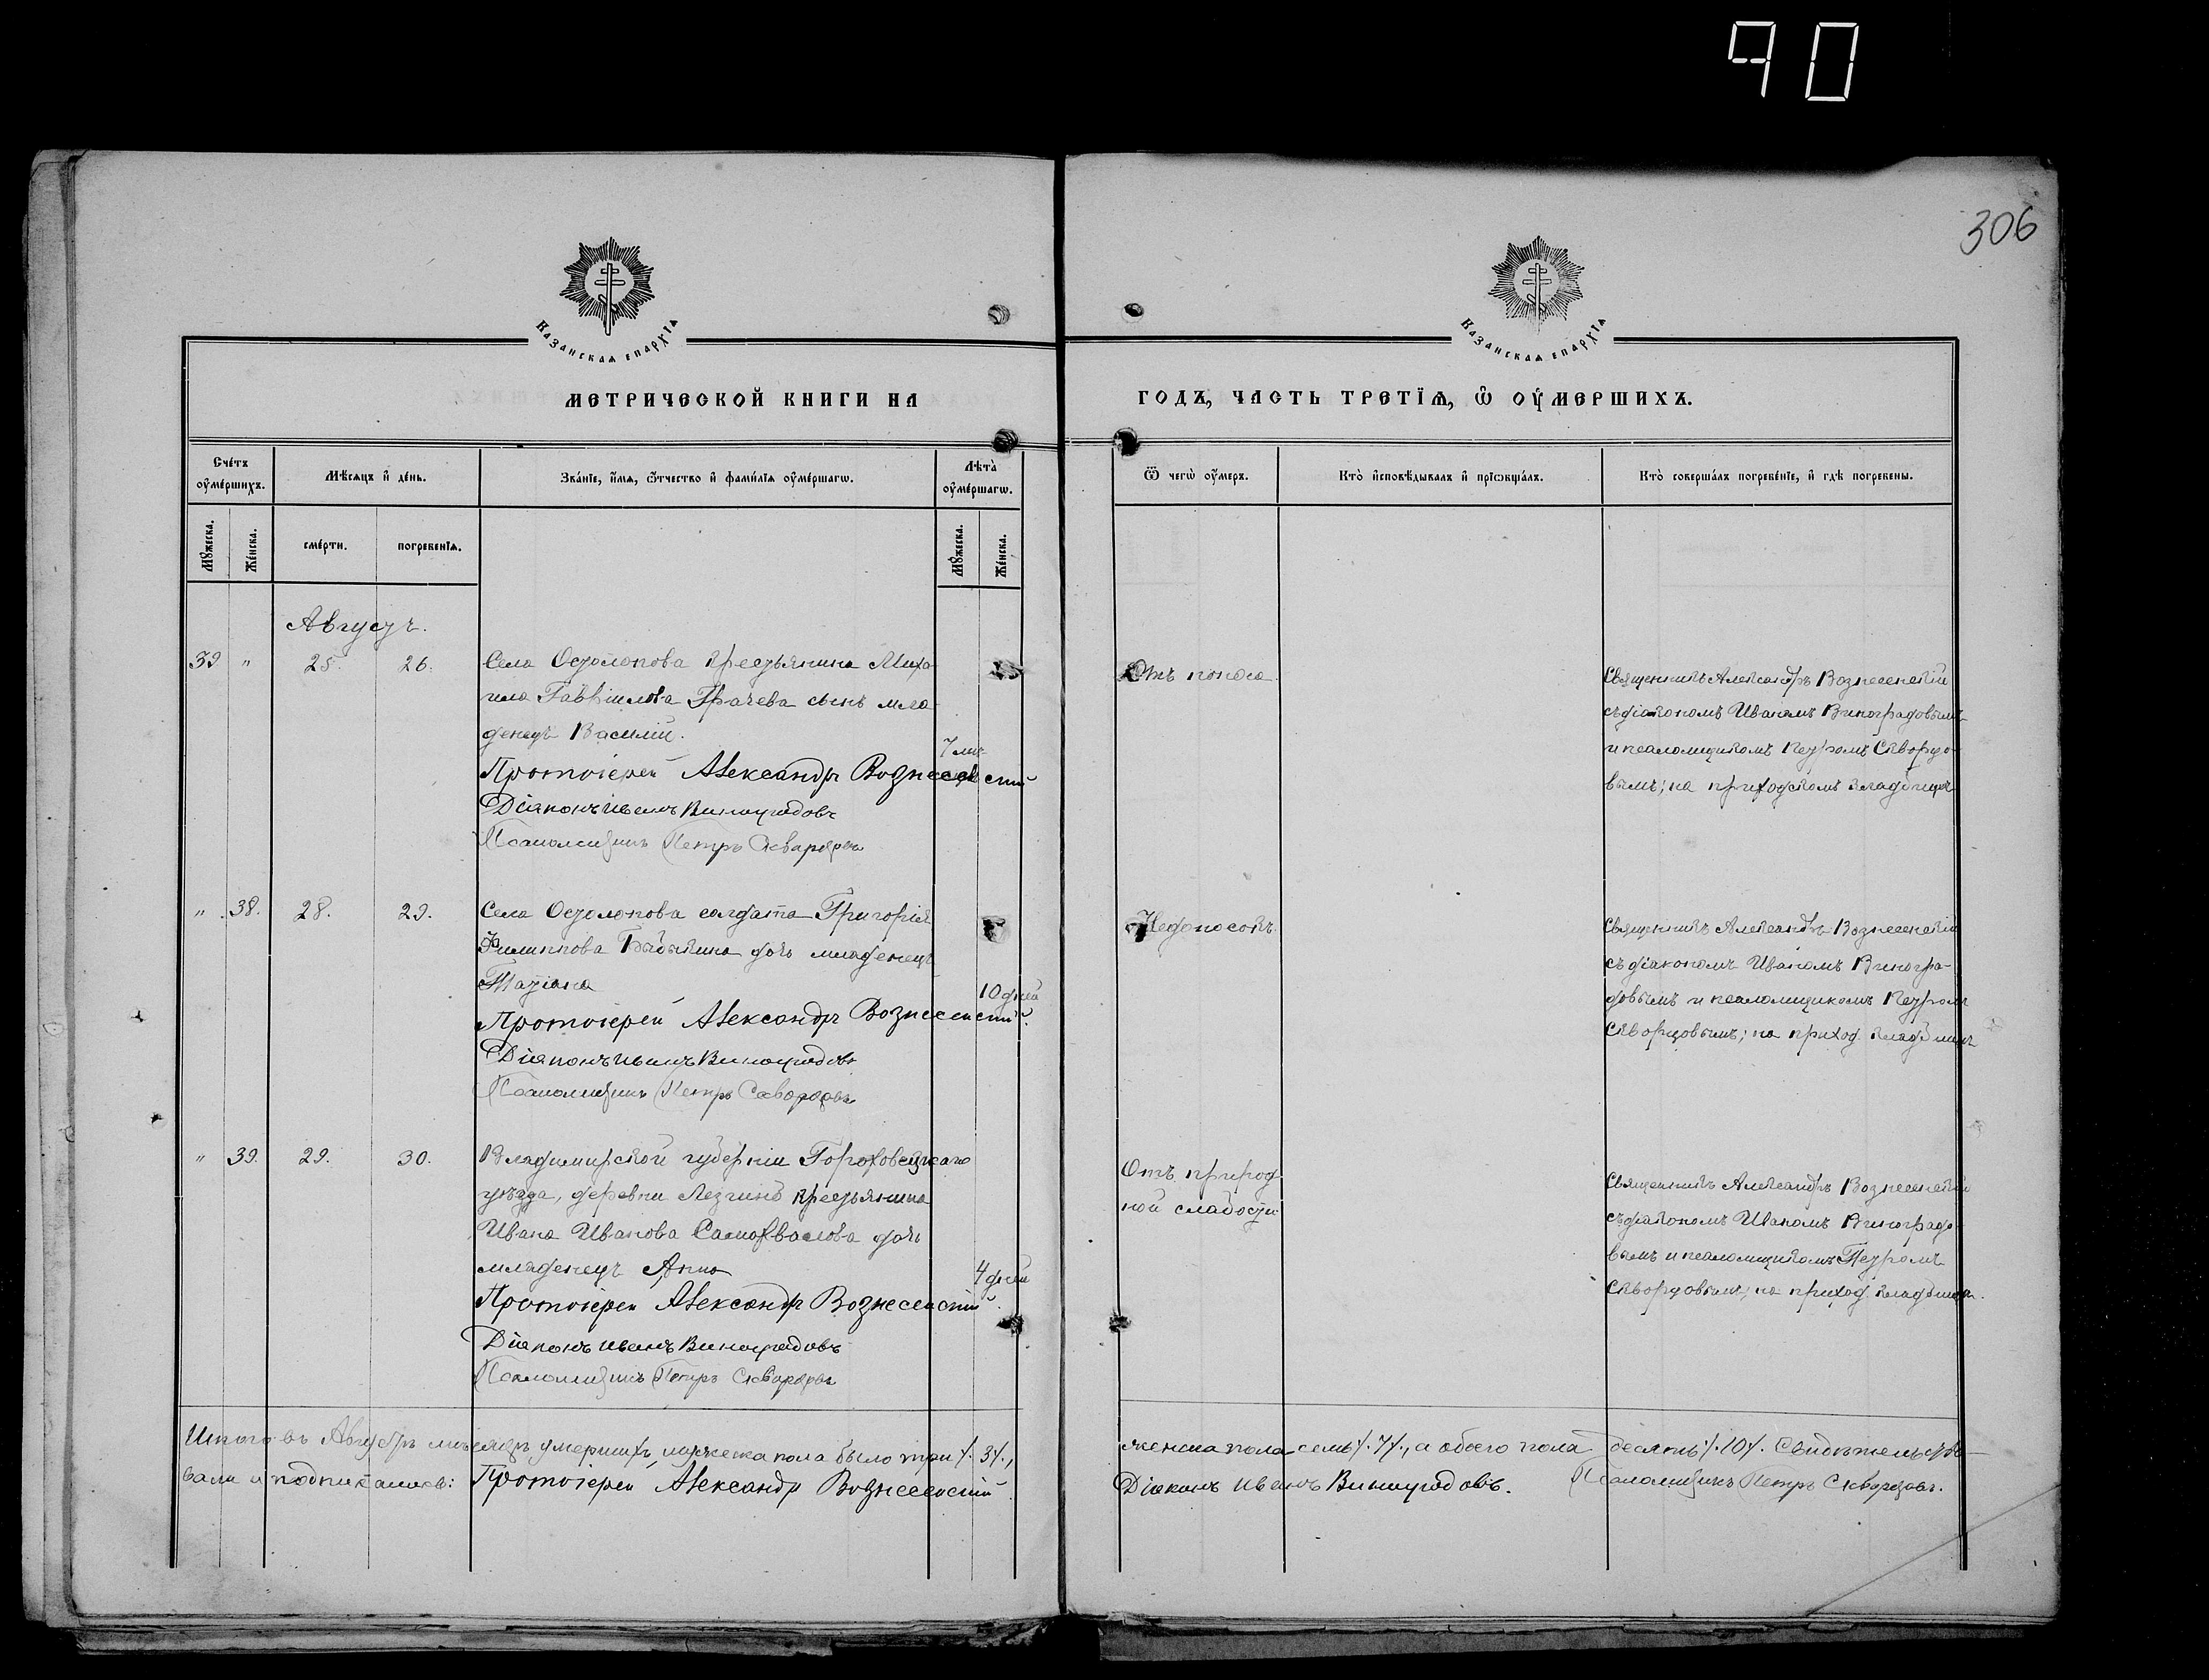 90
306
Казанскаѧ епархїѧ
Казанскаѧ епархїѧ
МЕТРИЧЕСКОЙ КНИГИ НА
ГОДЪ, ЧАСТЬ ТРЕТЇѦ, Ѡ ОУМЕРШИХЪ.
Счетъ оумершихъ.
Мѣсяцъ и день.
Званїе, имѧ, ѿчество и фамилїѧ оумершагѡ.
Лѣта оумершагѡ.
Ѿ чегѡ оумеръ.
Кто исповѣдывалъ и прїѡбщалъ.
Кто совершалъ погребенїе, и гдѣ погребены.
Мꙋжеска.
Женска.
смерти.
погребенїѧ.
Мꙋжеска.
Женска.
Августъ.
39 " 25. 26. Села Остолопова крестьянина Миха-
ила Гавріилова Грачева сынъ мла-
денецъ Василій.
7
Протоіерей Александръ Вознесенскій
Діаконъ Иванъ Виноградовъ
Псаломщикъ Петръ Скворцовъ
Отъ поноса
Священникъ Александръ Вознесенскій
съ діакономъ Иваномъ Виноградовымъ
и псаломщикомъ Петромъ Скворцо-
вымъ; на приходскомъ кладбищѣ
" 38. 28. 29. Села Остолопова солдата Григорія
Филиппова дочь младенецъ
Татіана
10 дней
Протоіерей Александръ Вознесенскій.
Діаконъ Иванъ Виноградовъ
Псаломщикъ Петръ Скворцовъ
Недоносокъ.
Священникъ Александръ Вознесенскій
съ діакономъ Иваномъ Виногра-
довымъ и псаломщикомъ Петромъ
Скворцовымъ; на приход. кладбищѣ
" 39. 29. 30. Владимирской губерніи Гороховецкаго
уѣзда, деревни крестьянина
Ивана Иванова Самохвалова дочь
младенецъ Анна
4 дней
Протоіерей Александръ Вознесенскій.
Діаконъ Иванъ Виноградовъ
Псаломщикъ Петръ Скворцовъ
Отъ природ-
ной слабости
Священникъ Александръ Вознесенскій
съ діакономъ Иваномъ Виноградо-
вымъ и псаломщикомъ Петромъ
Скворцовымъ; на приход. кладбищѣ.
Итого въ Августѣ мѣсяцѣ умершихъ мужеска пола было три /. 3 /.,
женска пола семь /. 7 /., а обоего пола десять /. 10 /. Свидѣтельство-
вали и подписались: Протоіерей Александръ Вознесенскій
Діаконъ Иванъ Виноградовъ. Псаломщикъ Петръ Скворцовъ.